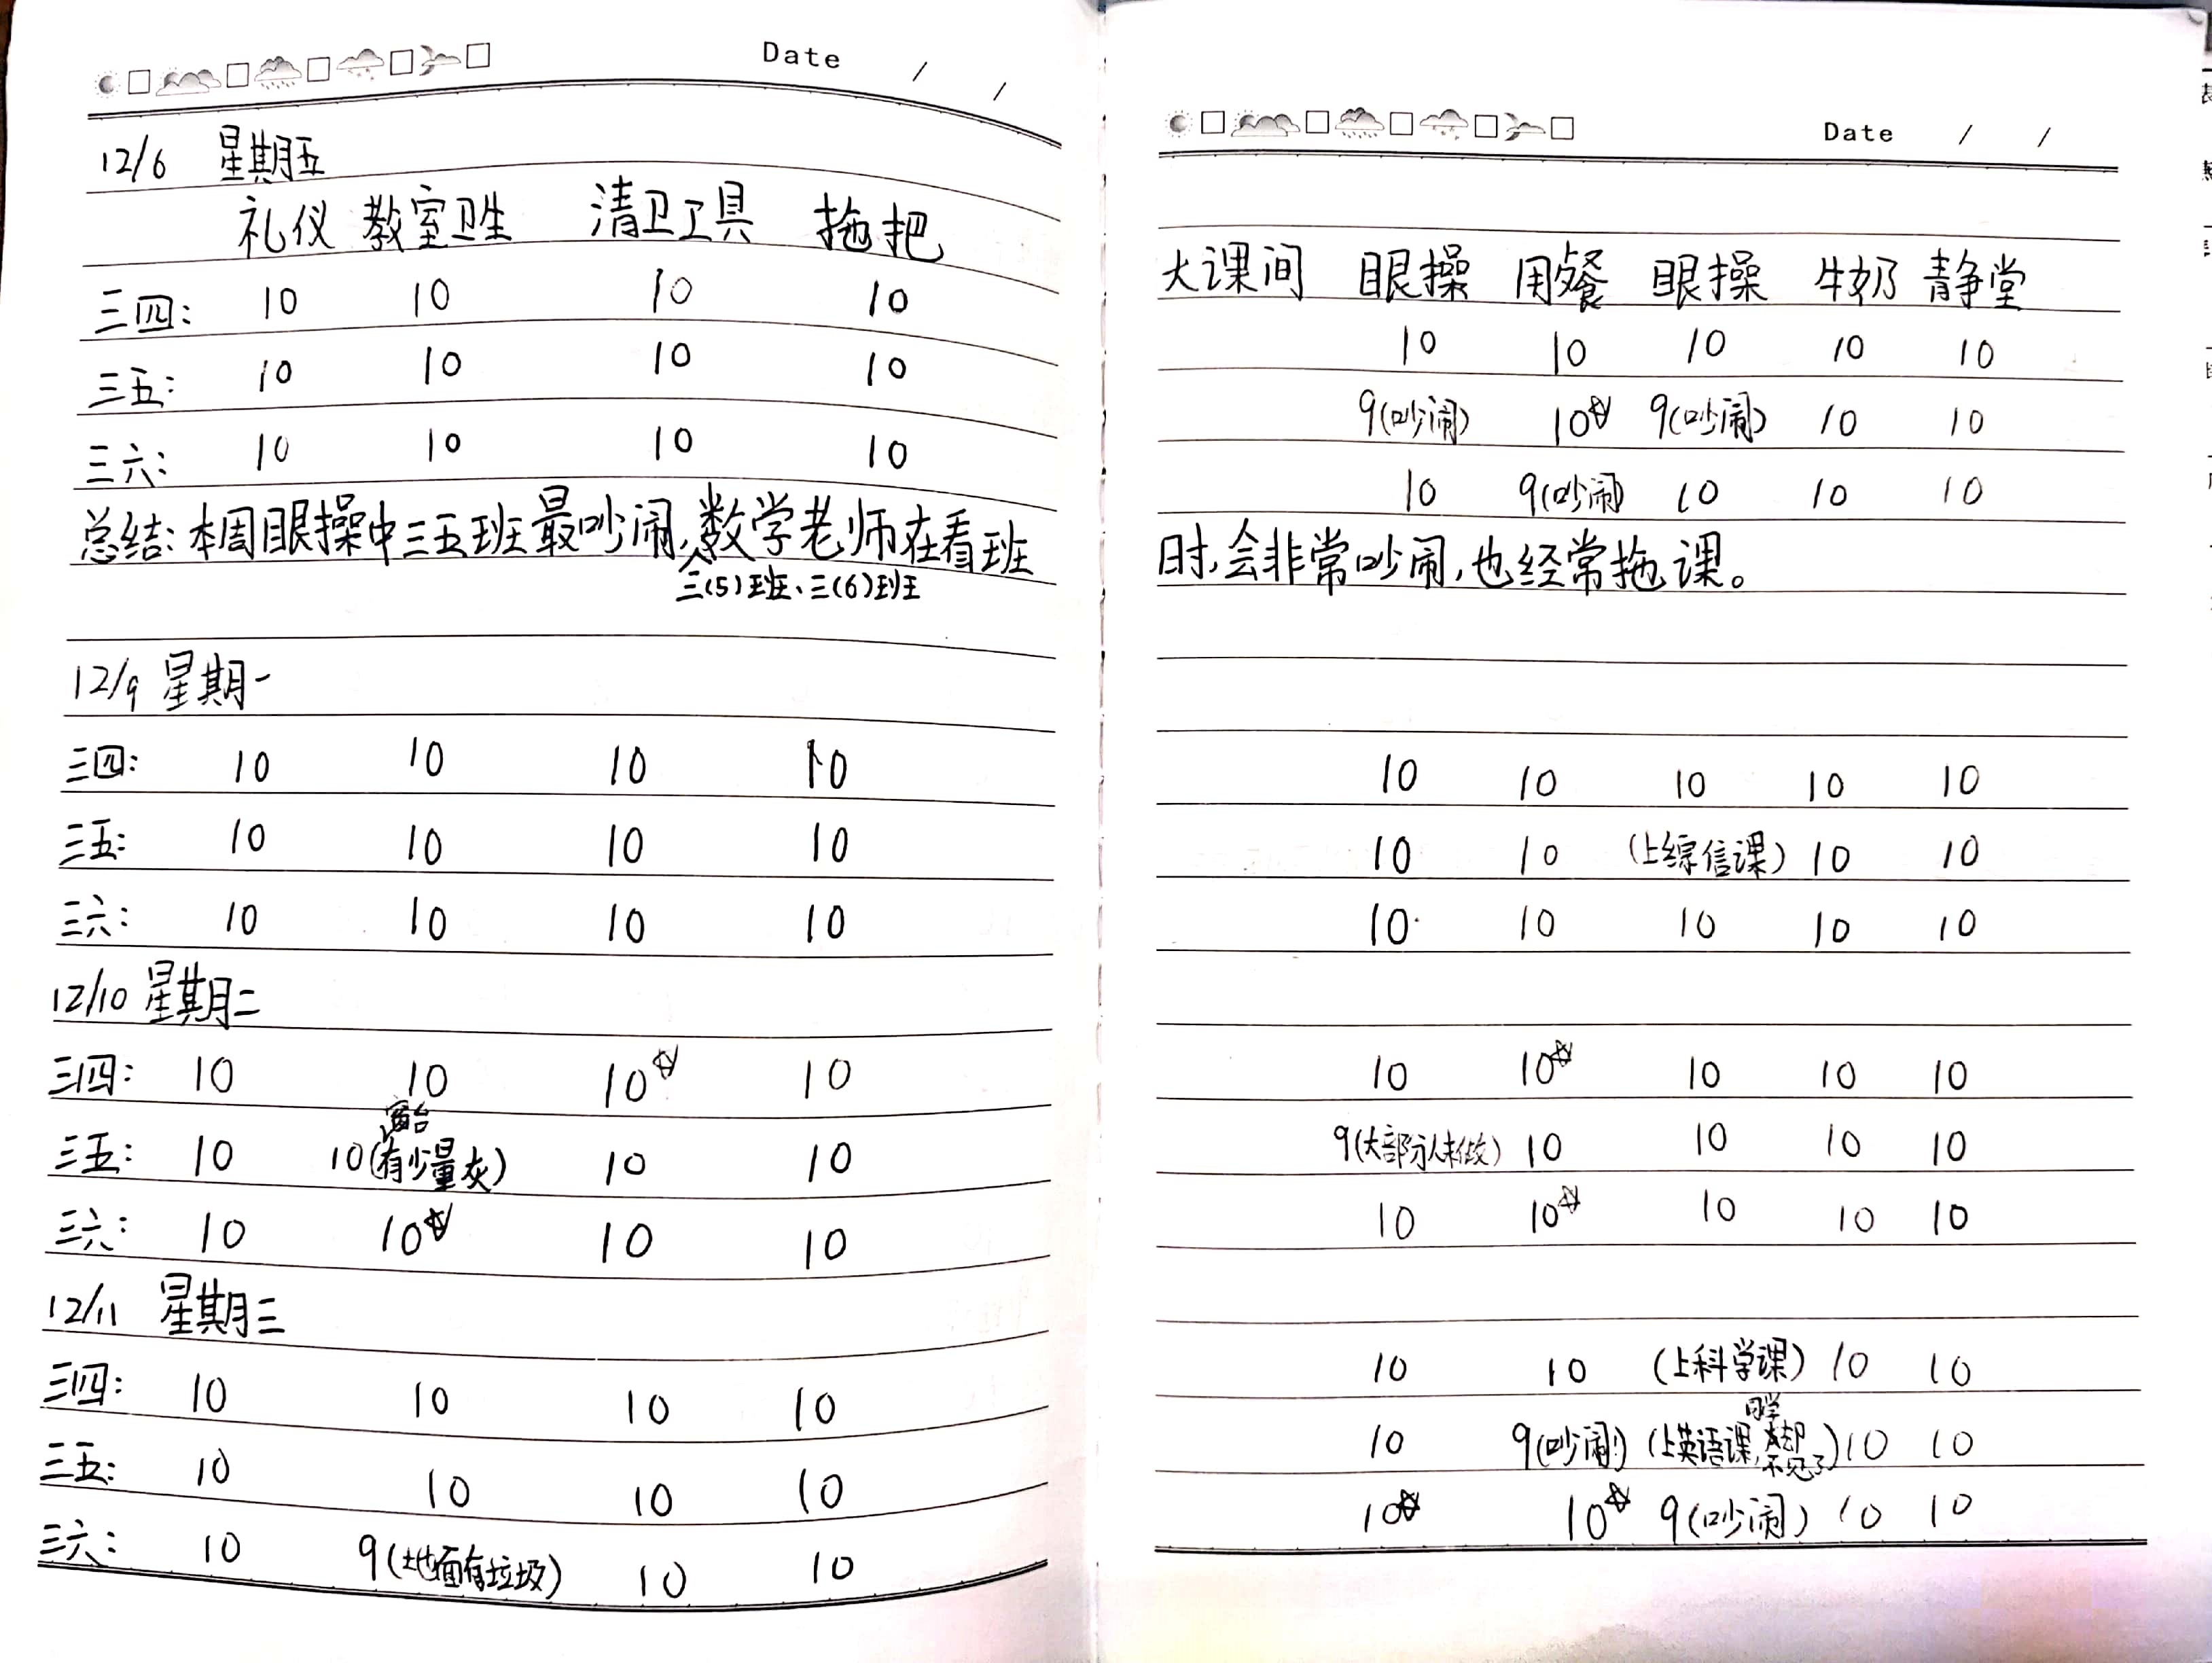 Date / /
12/6 星期五
礼仪 教室卫生 清卫工具 拖把
三四: 10 10 10 10
三五: 10 10 10 10
三六: 10 10 10 10
总结:本周眼操中三五班最吵闹,数学老师在看班
三(5)班、三(6)班
12/9 星期一
三四: 10 10 10 10
三五: 10 10 10 10
三六: 10 10 10 10
12/10 星期二
三四: 10 10 10☆ 10
窗台
三五: 10 10(有少量灰) 10 10
三六: 10 10☆ 10 10
12/11 星期三
三四: 10 10 10 10
三五: 10 10 10 10
三六: 10 9(地面有垃圾) 10 10
Date / /
大课间 眼操 用餐 眼操 牛奶 静堂
10 10 10 10 10
9(吵闹) 10☆ 9(吵闹) 10 10
10 9(吵闹) 10 10 10
时,会非常吵闹,也经常拖课。
10 10 10 10 10
10 10 (上综信课) 10 10
10 10 10 10 10
10 10☆ 10 10 10
9(大部分人未做) 10 10 10 10
10 10☆ 10 10 10
10 10 (上科学课) 10 10
同学
10 9(吵闹) (上英语课,却不见了) 10 10
10☆ 10☆ 9(吵闹) 10 10